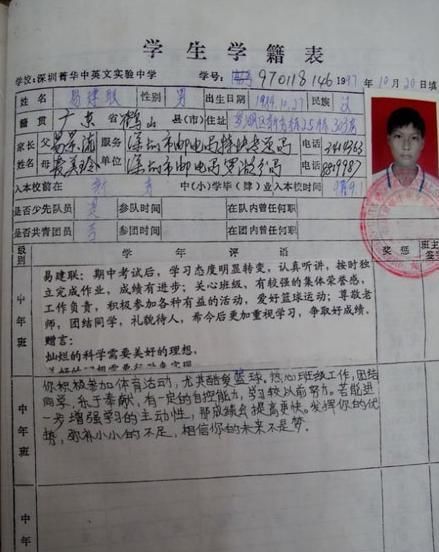 学生学籍表
学校:深圳菁华中英文实验中学 学号: 970118146 1997年10月20日填
姓名 易建联 性别 男 出生日期 1984.10.27 民族 汉
籍贯 广东省鹤山县(市) 住址
家长姓名 父 易景流 服务单位 电话
母 麦美玲 电话
入本校前在 中(小)学毕(肄)业 入本校时间
是否少先队员 参队时间 在队内曾任何职
是否共青团员 否 参团时间 在团内曾任何职
级别 学年评语 奖惩 班主
中年班
易建联:期中考试后,学习态度明显转变,认真听讲,按时独
立完成作业,成绩有进步;关心班级,有较强的集体荣誉感,
工作负责,积极参加各种有益的活动,爱好篮球运动;尊敬老
师,团结同学,礼貌待人,希今后更加重视学习,争取好成绩.
赠言:
灿烂的科学需要美好的理想,
中年班
你积极参加体育活动,尤其酷爱篮球。热心班级工作,团结
同学,乐于奉献,有一定的自控能力,学习较以前努力。若能进
一步增强学习的主动性,那成绩会提高更快。发挥你的优
势,弥补小小的不足,相信你的未来不是梦。
中年